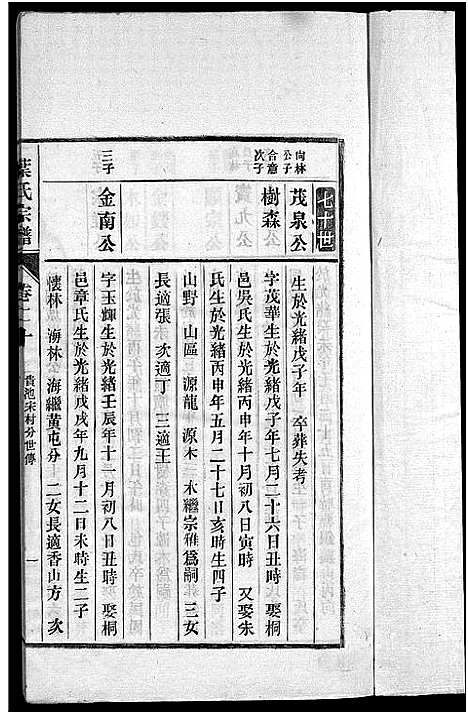 七十世
向林公子
茂泉公
生於光緒戊子年 卒葬失考
合意次子
樹森公
字茂華生於光緒戊子年七月二十六日丑時 娶桐
邑吳氏生於光緒丙申年十月初八日寅時 又娶朱
氏生於光緒丙申年五月二十七日亥時生四子
山野 山區 源龍 源木 三女
長適張 次適丁 三適王
三子
金南公
字玉輝生於光緒壬辰年十一月初八日丑時 娶桐
邑章氏生於光緒戊戌年九月十二日未時生二子
懷林 海林 二女長適香山方 次
葉氏宗譜
卷二十
貴池宋村分世傳
一